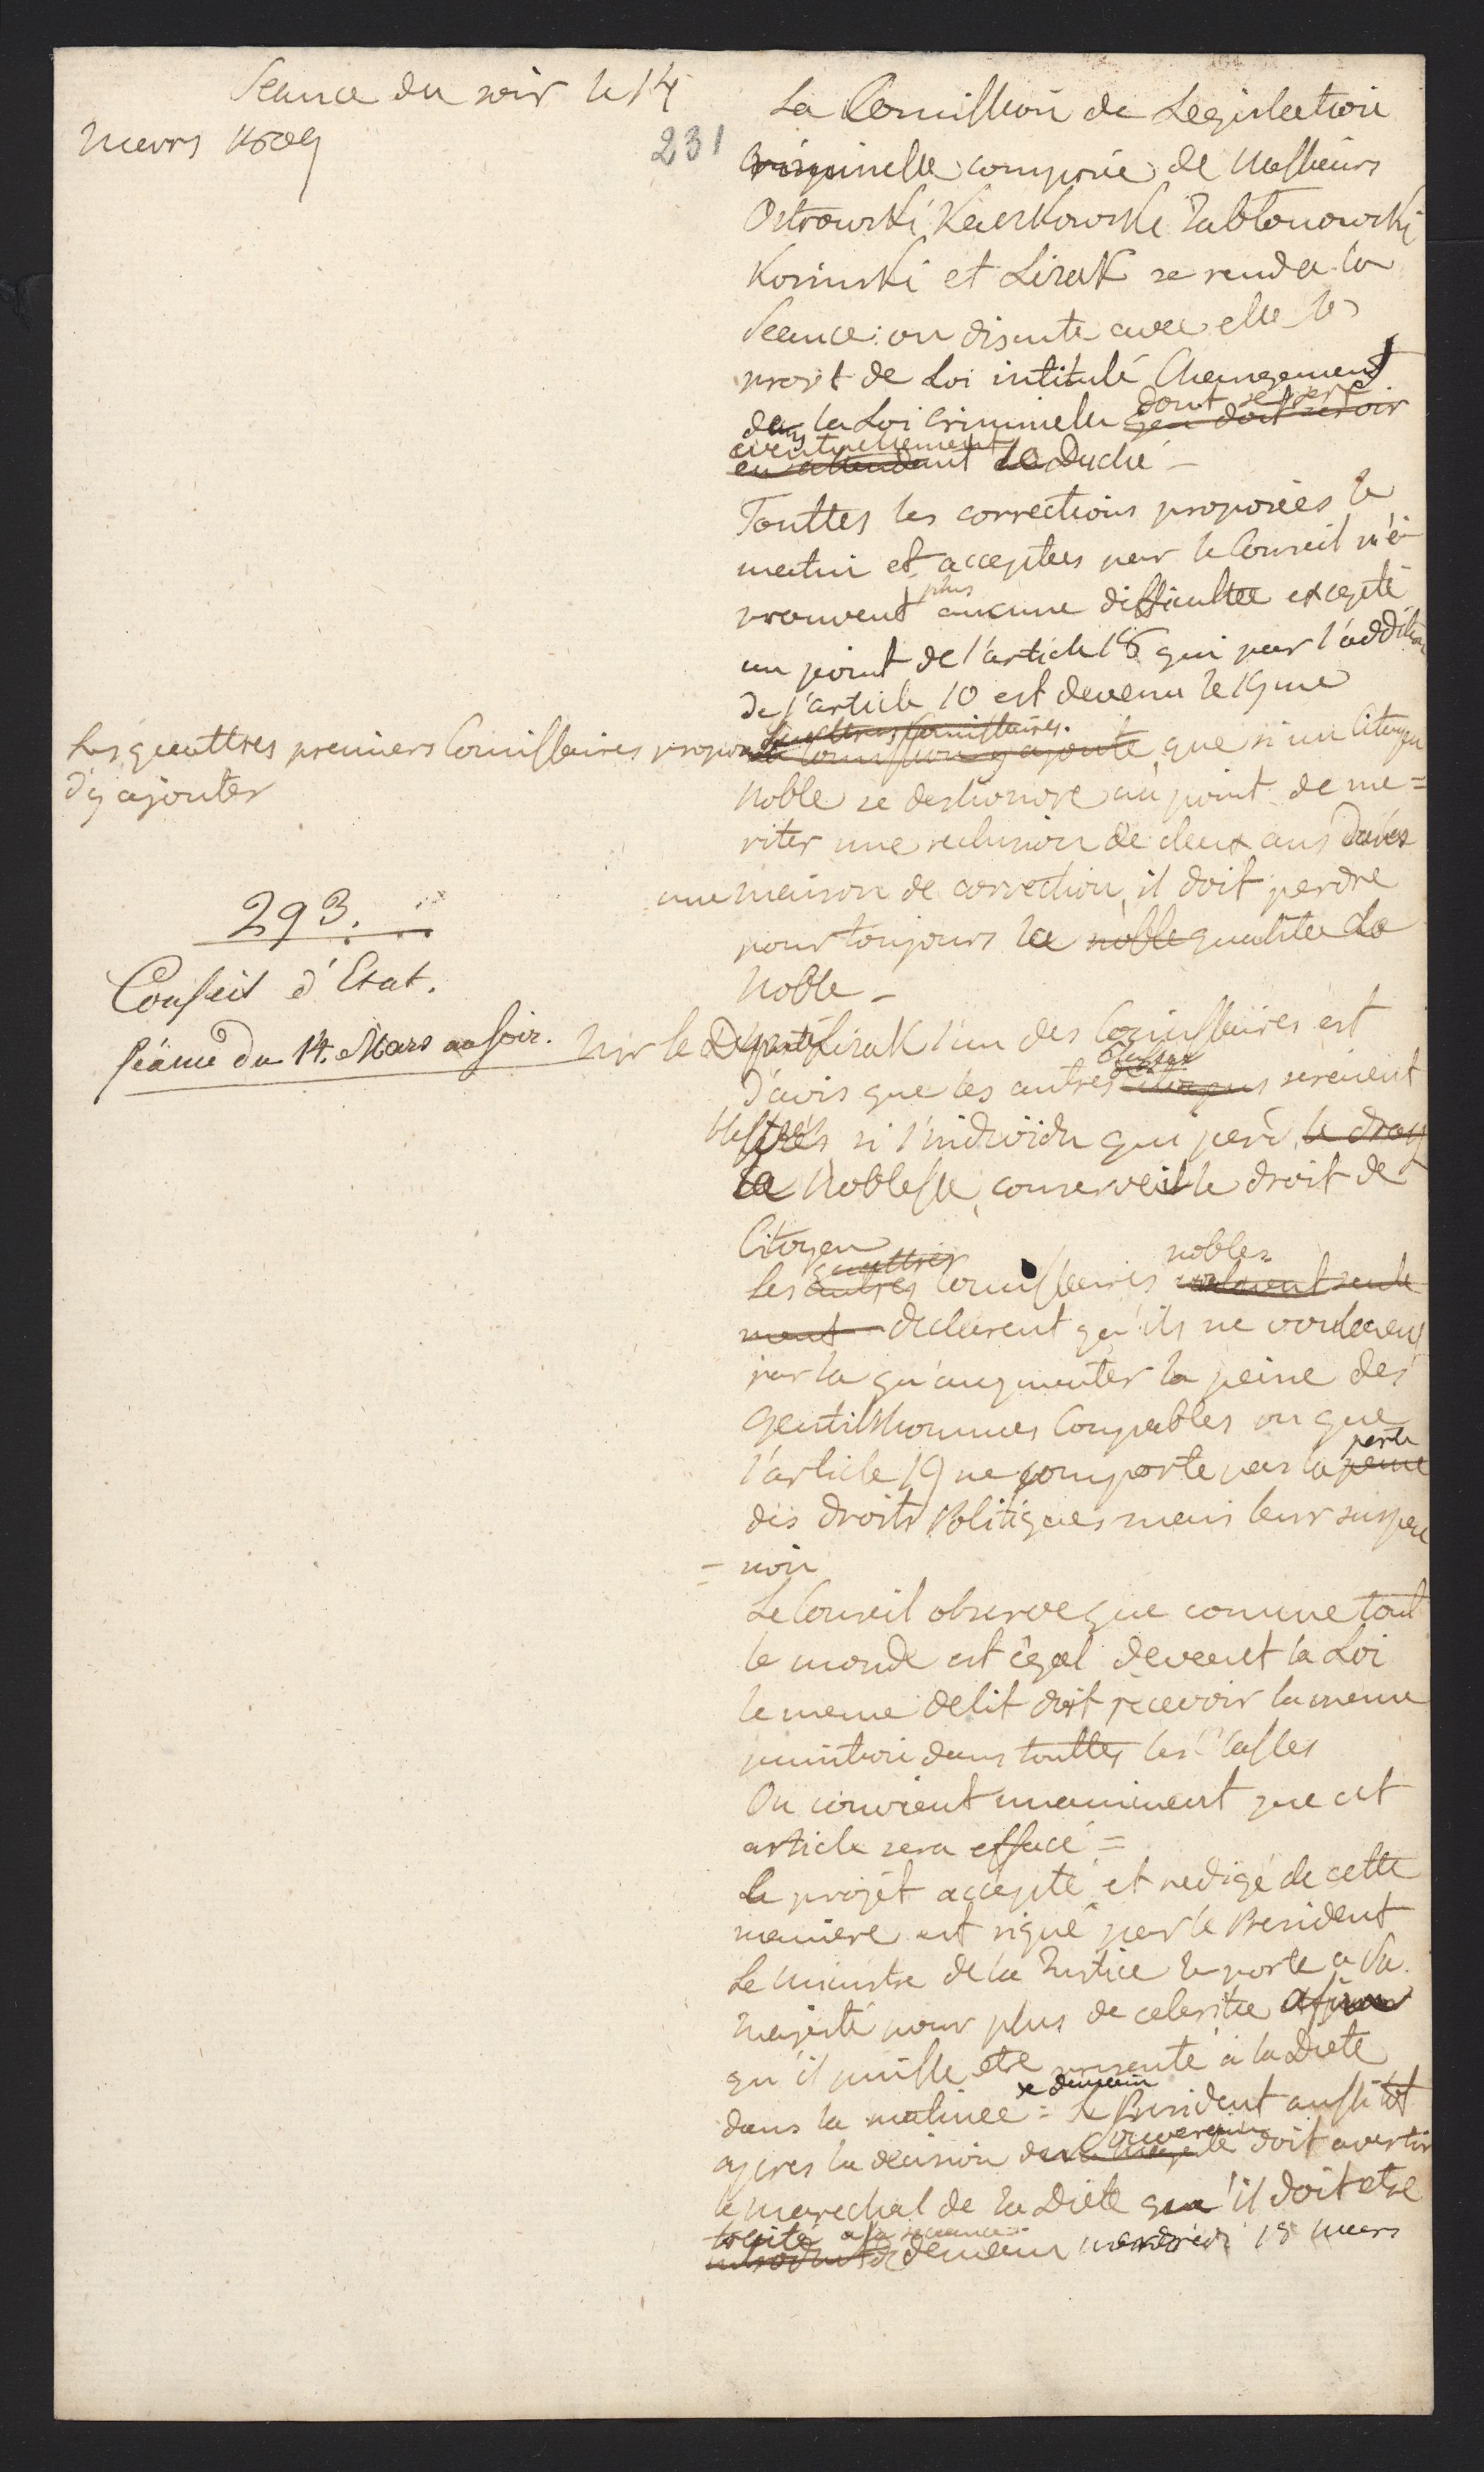 Seance du soir le 14
Mars 1809
231
La Comission de Legislation
Criminelle composée de Messieurs
Ostrowski Kaczkowski Jabłonowski
Kosinski et Lizak se rend a la
Seance: on discute avec elle le
projet de Loi intitulé Changement
dans la Loi criminelle dont se sert
qu'en doit servoir
eventuellement
en attendant le Duché –
Touttes les corrections proposées le
matin et acceptees par le Conseil n'é-
prouvent plus aucune difficultée excepté
un point de l'article 18 qui par l'addition
de l'article 10 est devenu le 19me
Les quattres premiers Comissaires proposent
d'y ajouter
Comissaires.
la Comission y ajoute que si un Citoyen
Noble se deshonore au point de me=
riter une reclusion de deux ans dans
une maison de correction, il doit perdre
pour toujours la noble qualitée de
Noble –
293.
Conseil d'Etat.
Séance du 14. Mars au soir.
Mr le Deputé Lizak l'un des Comissaires est
d'avis que les autres classes seraient
blessées si l'individu qui perd le droit
la Noblesse, conservait le droit de
Citoyen
Les quattres autres Comissaires nobles voulaient seule
ment declarent qu'ils ne voulaient
par la qu'augmenter la peine des
Gentilshommes Coupables vu que
l'article 19 ne comporte pas la perte peine
des droits Politiques mais leur suspen
= sion
Le Conseil observe que comme tout
le monde est égal devant la Loi
le meme delit doit recevoir la meme
punition dans touttes les Classes
On convient unanimement que cet
article sera effacé =
Le projet accepté et redigé de cette
maniere est signé par le President
Le Ministre de la Justice le porte a Sa
Majesté pour plus de celeritée afin
qu'il puisse etre presenté à la Diete
dans la matinee de demain = Le President aussitot
apres la decision du Souverain doit avertir
le marechal de la Diete qu'il doit etre
traité a la seance
introduit de demain mercredi 15 mars